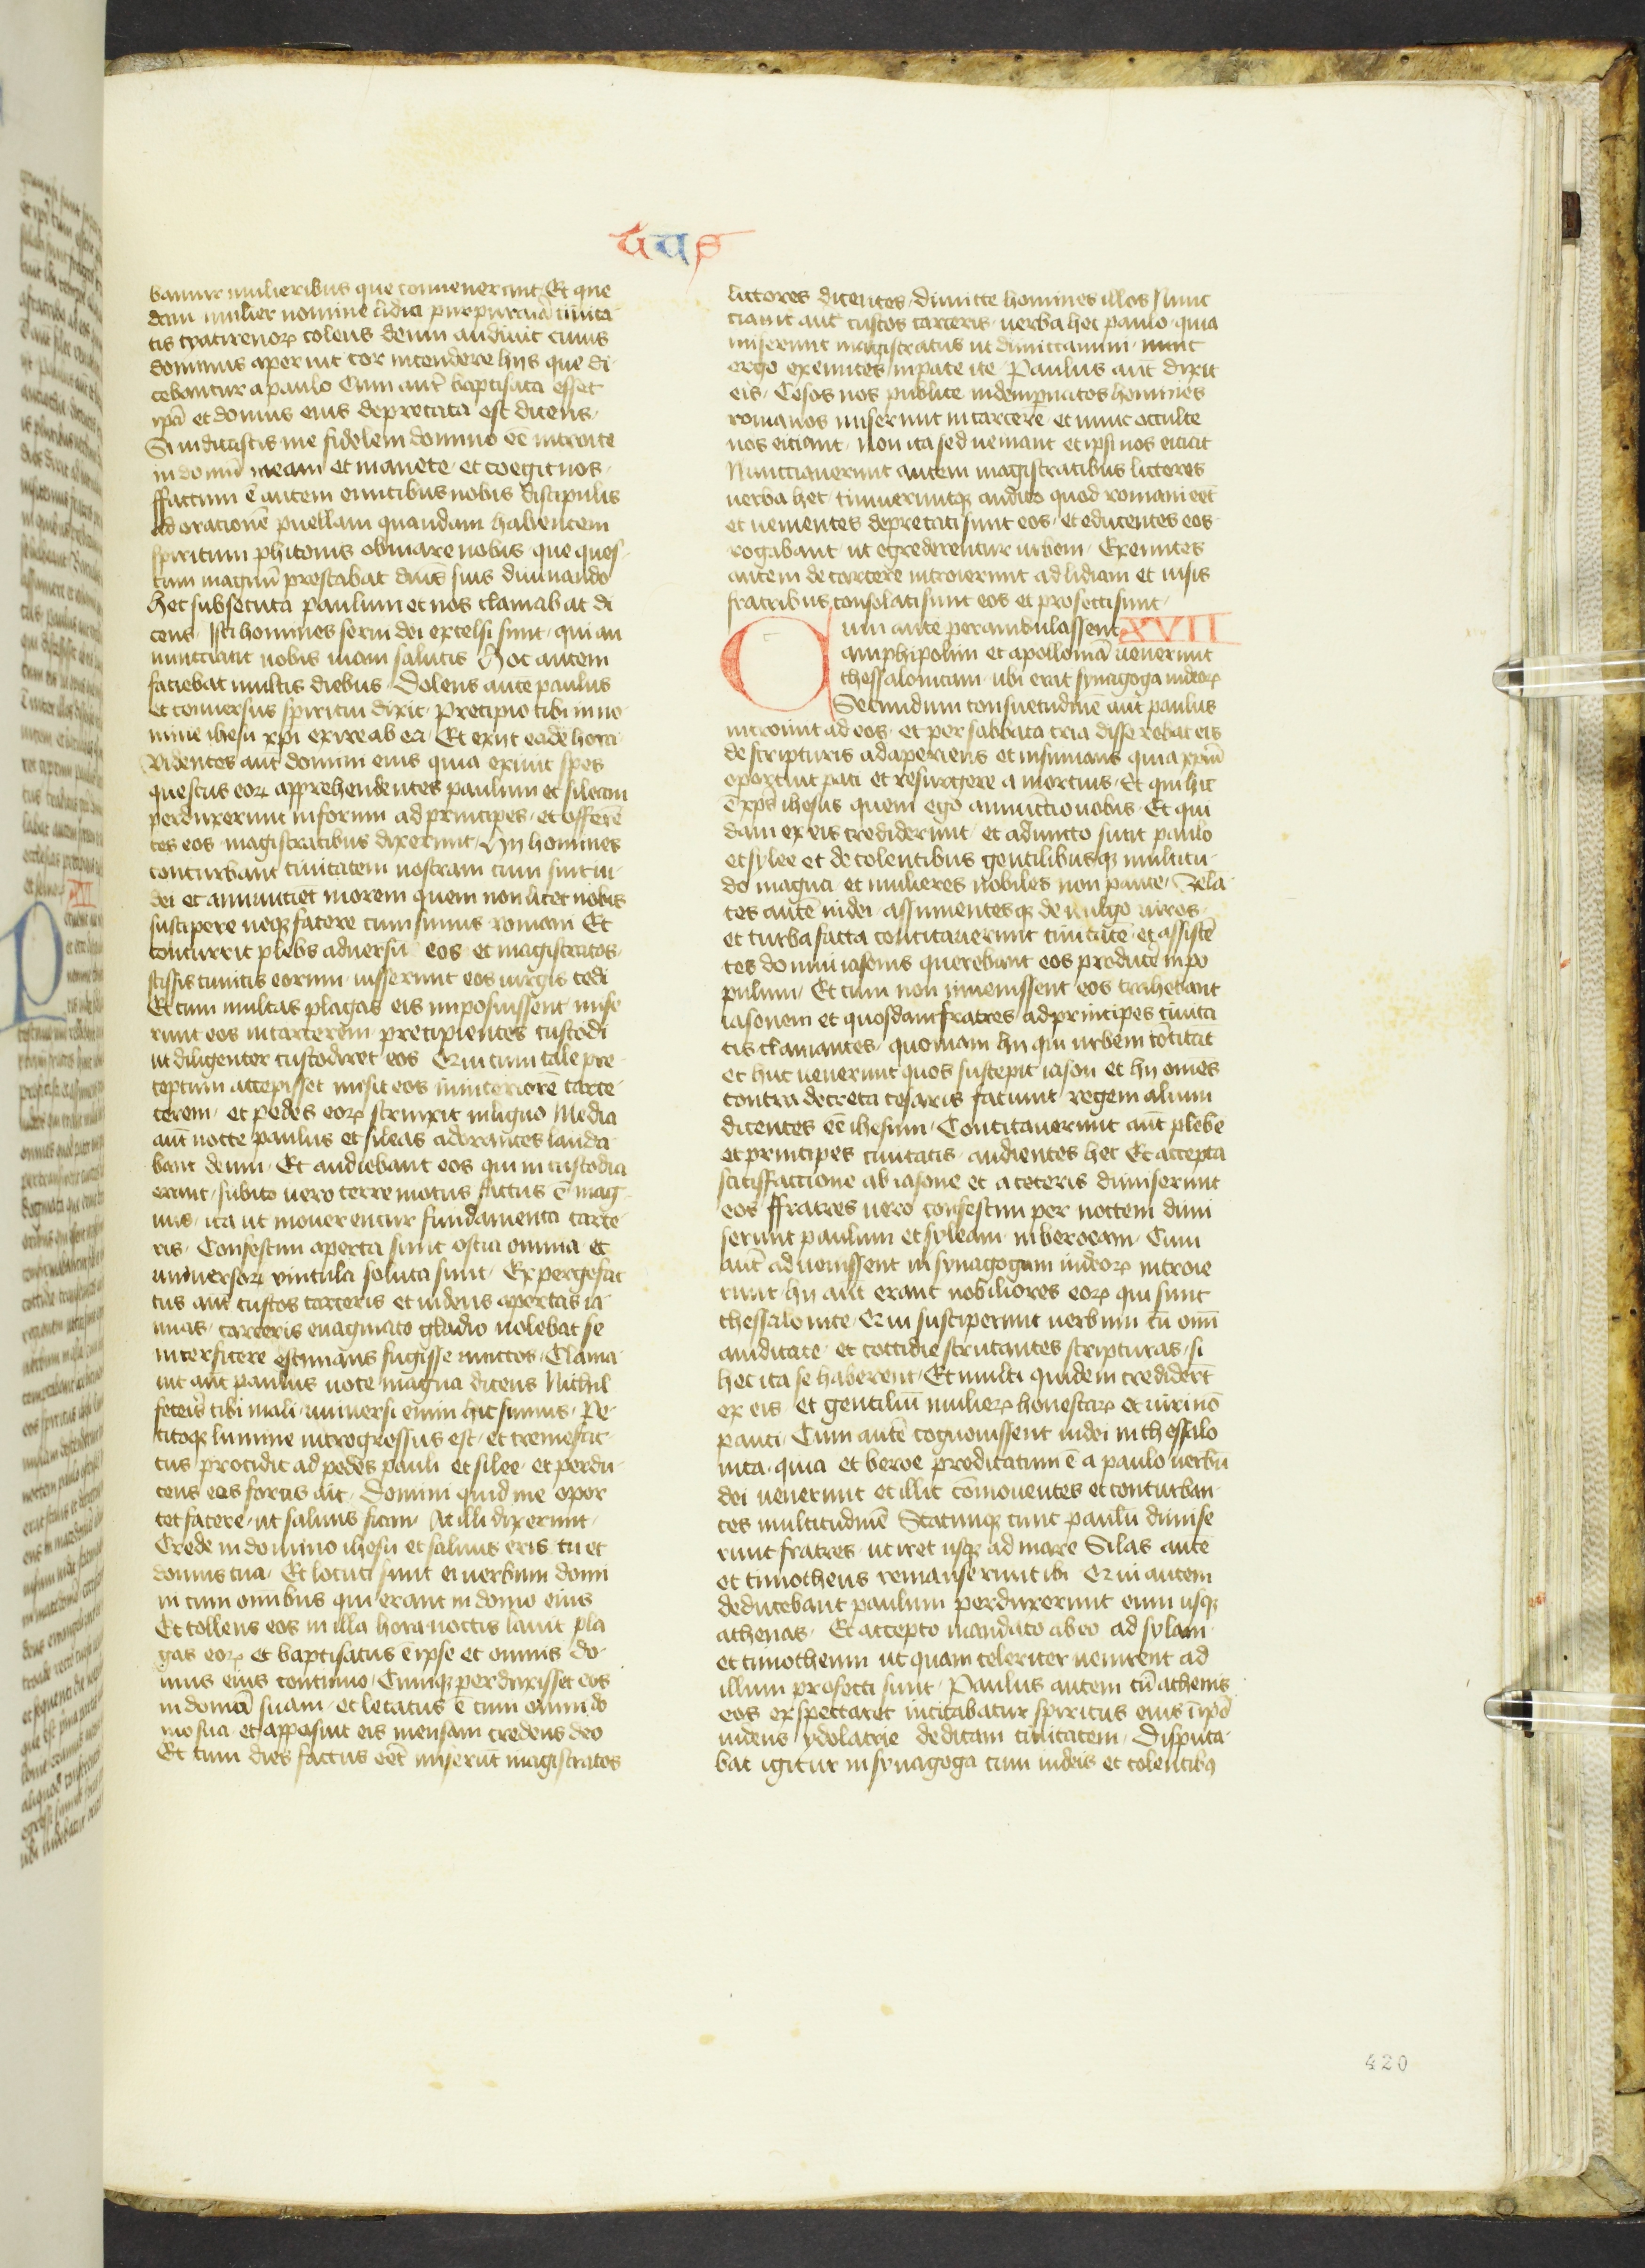 tus
bantur mulieribus que conuenerant Et que
dam mulier nomine lidia purpurariā ciuita
tis tyatirenoꝝ colens deum audiuit cuius
dominus aperuit cor intendere hijs que di
cebantur a paulo Cum autē baptisata esset
ip̄a et domus eius deprecata est dicens
Si iudicastis me fidelem domino eē introite
in domū meam et manete et coegit nos
ffactum ē autem euntibus nobis discipulis
ad orationē puellam quandam habentem
spiritum phitonis obuiare nobis que ques
tum magnū prestabat dn̄is suis diuinando
Hec subsecuta paulum et nos clamabat di
cens Isti homines serui dei excelsi sunt qui an
nunctiant nobis uiam salutis Hoc autem
faciebat multis diebus Dolens aute paulus
et conuersus spiritui dixit Precipio tibi in no
mine ihesu xpi exire ab ea Et exiit eadē hora
Videntes aut̄ domini eius quia exiuit spes
questus eoꝝ apprehendentes paulum et sileam
perduxerunt in forum ad principes et offerē
tes eos magistratibus dixerunt Hij homines
conturbant ciuitatem nostram cum sint iu
dei et annunciēt morem quem non licet nobis
suscipere neqꝫ facere cum simus romani Et
concurrit plebs aduersū eos et magistratos
scissis tunicis eorum iusserunt eos uirgis cedi
Et cum multas plagas eis imposuissent mise
runt eos in carcerem precipientes custodi
ut diligenter custodiret eos Qui cum tale pre
ceptum accepisset misit eos in interiorē carce
cerem et pedes eoꝝ strinxit in ligno Media
aut̄ nocte paulus et sileas adorantes lauda
bant deum Et audiebant eos qui in custodia
erant subito uero terre motus factus ē mag
nus ita ut mouerentur fundamenta carce
ris Confestim aperta sunt ostia omnia et
uniuersoꝝ vincula soluta sunt Expergefac
tus aut̄ custos carceris et uidens apertas ia
nuas carceris euaginato gladio uolebat se
interficere estimans fugisse uinctos Clama
uit aut̄ paulus uoce magna dicens Nichil
feceris tibi mali uniuersi enim hic sumus Pe
titoqꝫ lumine introgressus est et tremefac
tus procidit ad pedes pauli et silee et perdu
cens eos foras ait Domini quid me opor
tet facere ut saluus fiam At illi dixerunt
Crede in domino ihesu et saluus eris tu et
domus tua Et locuti sunt ei uerbum domi
ni cum omībus qui erant in domo eius
Et tollens eos in illa hora noctis lauit pla
gas eoꝝ et baptisatus ē ipse et omnis do
mus eius continuo Cumqꝫ perduxisset eos
in domū suam et letatus ē cum omni do
mo sua et apposuit eis mensam credens deo
Et cum dies factus eēt miserūt magistratos
lictores dicentes dimitte homines illos Nunc
ciauit aut̄ custos carceris uerba hec paulo quia
miserunt magistratus ut dimittamini nunc
ergo exeuntes in pace ite Paulus aut̄ dixit
eis Cesos nos publice indempnatos homines
romanos miserunt in carcerē et nunc occulte
nos eiciunt non ita sed ueniant et ipsi nos eiciāt
Nunctiauerunt autem magistratibus lictores
uerba hec timueruntqꝫ audito quod romani eēt
et uenientes deprecati sunt eos et educentes eos
rogabant ut egrederentur urbem Exeuntes
autem de carcere introierunt ad lidiam et uisis
fratribus consolati sunt eos et profecti sunt
Cum aute perambulassent XVII
amphipolim et apolloniā uenerunt
thessalonicam ubi erat synagoga iudeoꝝ
Secundum consuetudinē aut̄ paulus
introiuit ad eos et per sabbata tria disserebat eis
de scripturis adaperiens et insinuans quia xp̄m
oportuit pati et resurgere a mortuis Et qui hic
ē xp̄s ihesus quem ego annunctio uobis Et qui
dam ex eis crediderunt et adiuncto sunt paulo
et sylee et de colentibus gentilibusqꝫ multitu
do magna et mulieres nobiles non pauce Zela
tes autē iudei assumentesqꝫ de uulgo uiros
et turba facta concitauerunt ciuitatē et assistē
tes domui iasonis querebant eos producē in po
pulum Et cum non inuenissent eos trahebant
iasonem et quosdam fratres ad principes ciuita
tis clamantes quoniam hij qui urbem cōcitāt
et huc uenerunt quos suscepit iason et hij omēs
contra decreta cesaris faciunt regem alium
dicentes eē ihesum Concitauerunt aut̄ plebē
et principes ciuitatis audientes hec Et accepta
satisffactione ab iasone et a ceteris dimiserunt
eos ffratres uero confestim per noctem dimi
serunt paulum et syleam in beroeam Cum
aut̄ aduenissent in synagogam iudeoꝝ introie
runt hij aut̄ erant nobiliores eoꝝ qui sunt
thessalonice Qui susceperunt uerbum cū omī
auiditate et cottidie scrutantes scripturas si
hec ita se haberent Et multi quidem credidert̄
ex eis et gentiliū mulieꝝ honestaꝝ et uiri nō
pauci Cum autē cognouissent iudei in thessalo
nica quia et beroe predicatum ē a paulo uerbū
dei uenerunt et illic cōmouentes et conturban
tes multitudinē Statimqꝫ tunc paulū dimise
runt fratres ut iret usqꝫ ad mare Silas autē
et timotheus remanserunt ibi Qui autem
deducebant paulum perduxerunt eum usqꝫ
athenas Et accepto mandato ab eo ad sylam
et timotheum ut quam celeriter uenirent ad
illum profecti sunt Paulus autem cū athenis
eos exspectaret incitabatur spiritus eius ī ip̄o
uidens ydolatrie deditam ciuitatem Disputa
bat igitur in synagoga cum iudeis et colentibꝰ
420